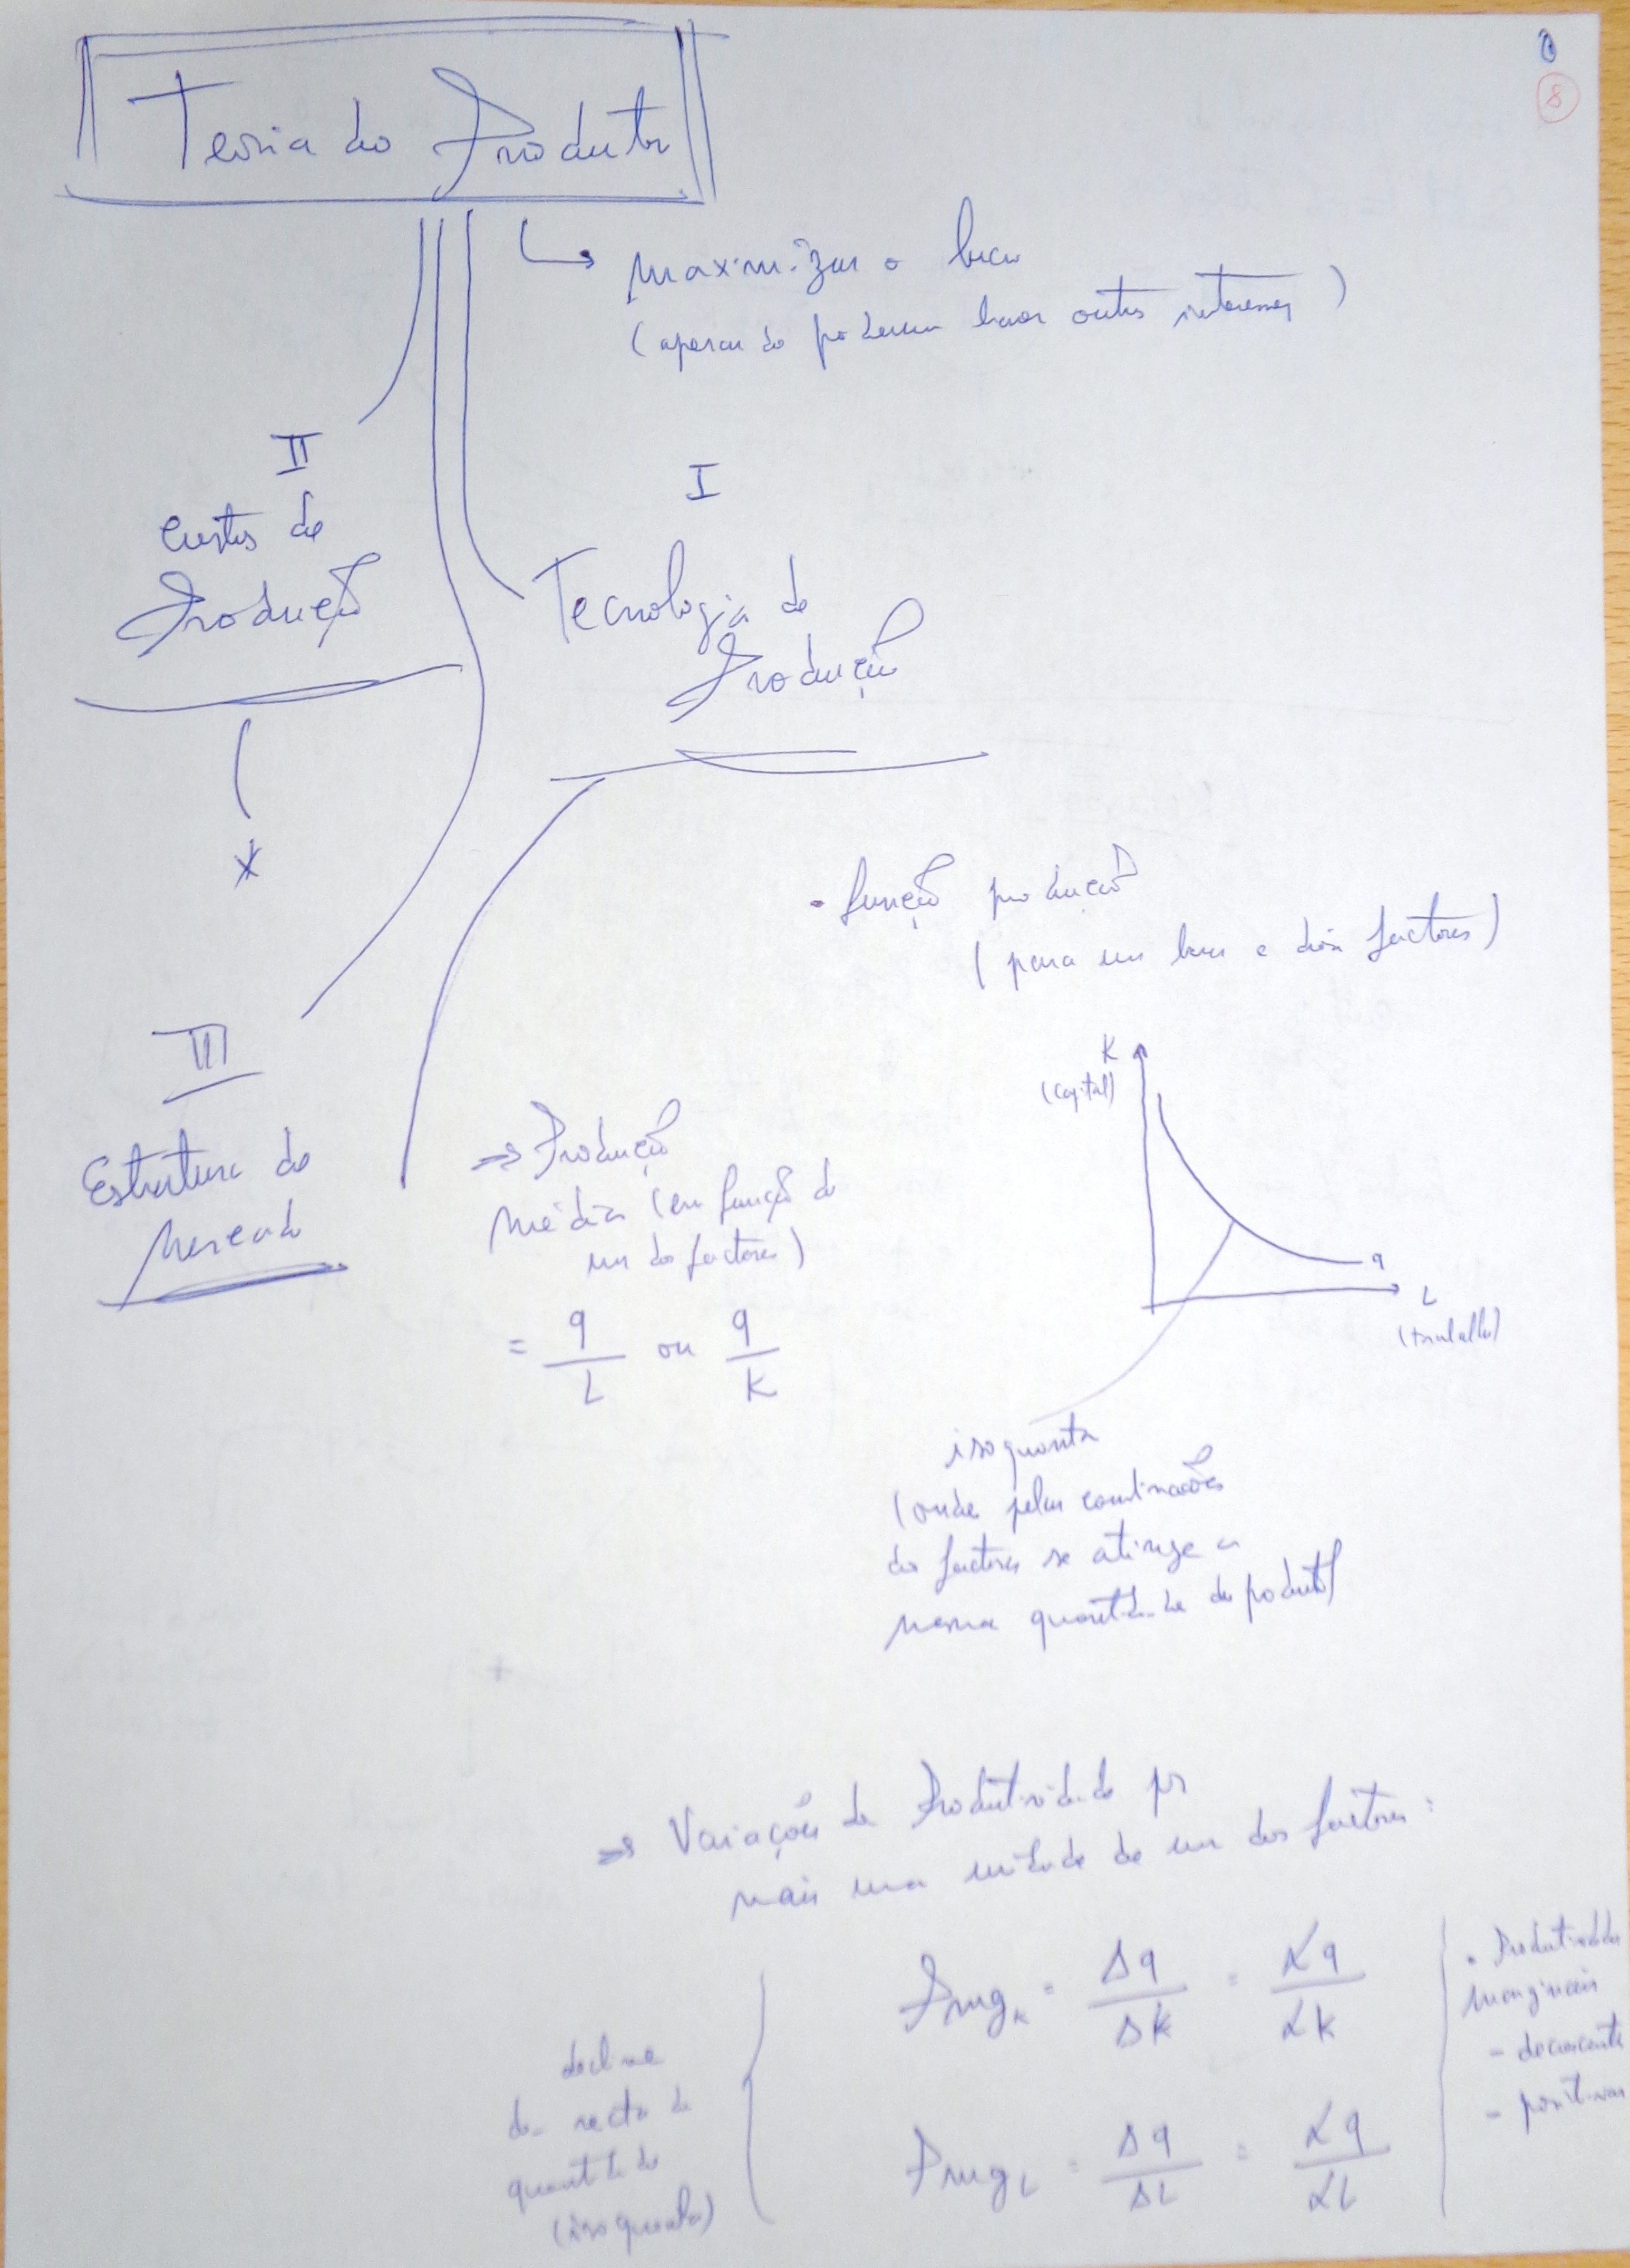 8
Teoria do Produtor
maximizar o lucro
(apesar de poderem haver outros interesses)
II
Custos de
Produção
I
Tecnologia de
Produção
• função produção
(para um bem e dois factores)
K
(capital)
q
L
(trabalho)
isoquanta
(onde pelas combinações
dos factores se atinge a
mesma quantidade de produto)
III
Estrutura de
Mercado
⇒ Produção
média (em função de
um dos factores)
= q/L ou q/K
⇒ Variações de Produtividade por
mais uma unidade de um dos factores:
Pmg K = Δq/ΔK = dq/dK
Pmg L = Δq/ΔL = dq/dL
declive
da recta de
quantidade
(isoquanta)
• Produtividades
marginais
- decrescente
- positivas